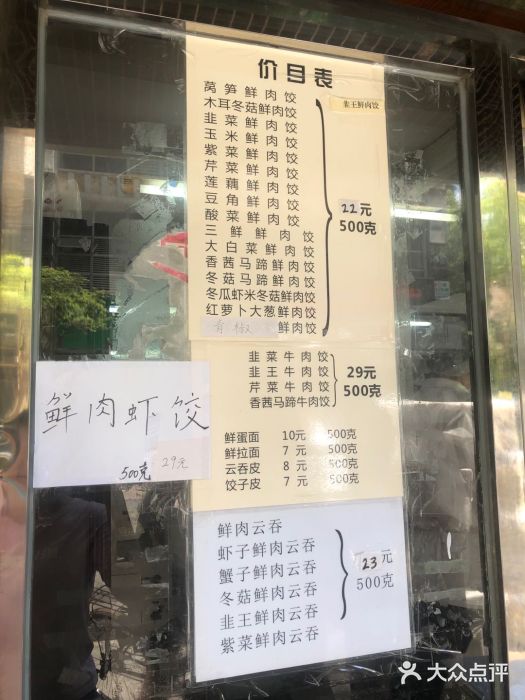 价目表
韭王鲜肉饺
莴笋鲜肉饺
木耳冬菇鲜肉饺
韭菜鲜肉饺
玉米鲜肉饺
紫菜鲜肉饺
芹菜鲜肉饺
莲藕鲜肉饺
豆角鲜肉饺
酸菜鲜肉饺
三鲜鲜肉饺
大白菜鲜肉饺
香茜马蹄鲜肉饺
冬菇马蹄鲜肉饺
冬瓜虾米冬菇鲜肉饺
红萝卜大葱鲜肉饺
青椒鲜肉饺
22元
500克
韭菜牛肉饺
韭王牛肉饺
芹菜牛肉饺
香茜马蹄牛肉饺
29元
500克
鲜蛋面 10元 500克
鲜拉面 7元 500克
云吞皮 8元 500克
饺子皮 7元 500克
鲜肉虾饺
500克 29元
鲜肉云吞
虾子鲜肉云吞
蟹子鲜肉云吞
冬菇鲜肉云吞
韭王鲜肉云吞
紫菜鲜肉云吞
23元
500克
大众点评